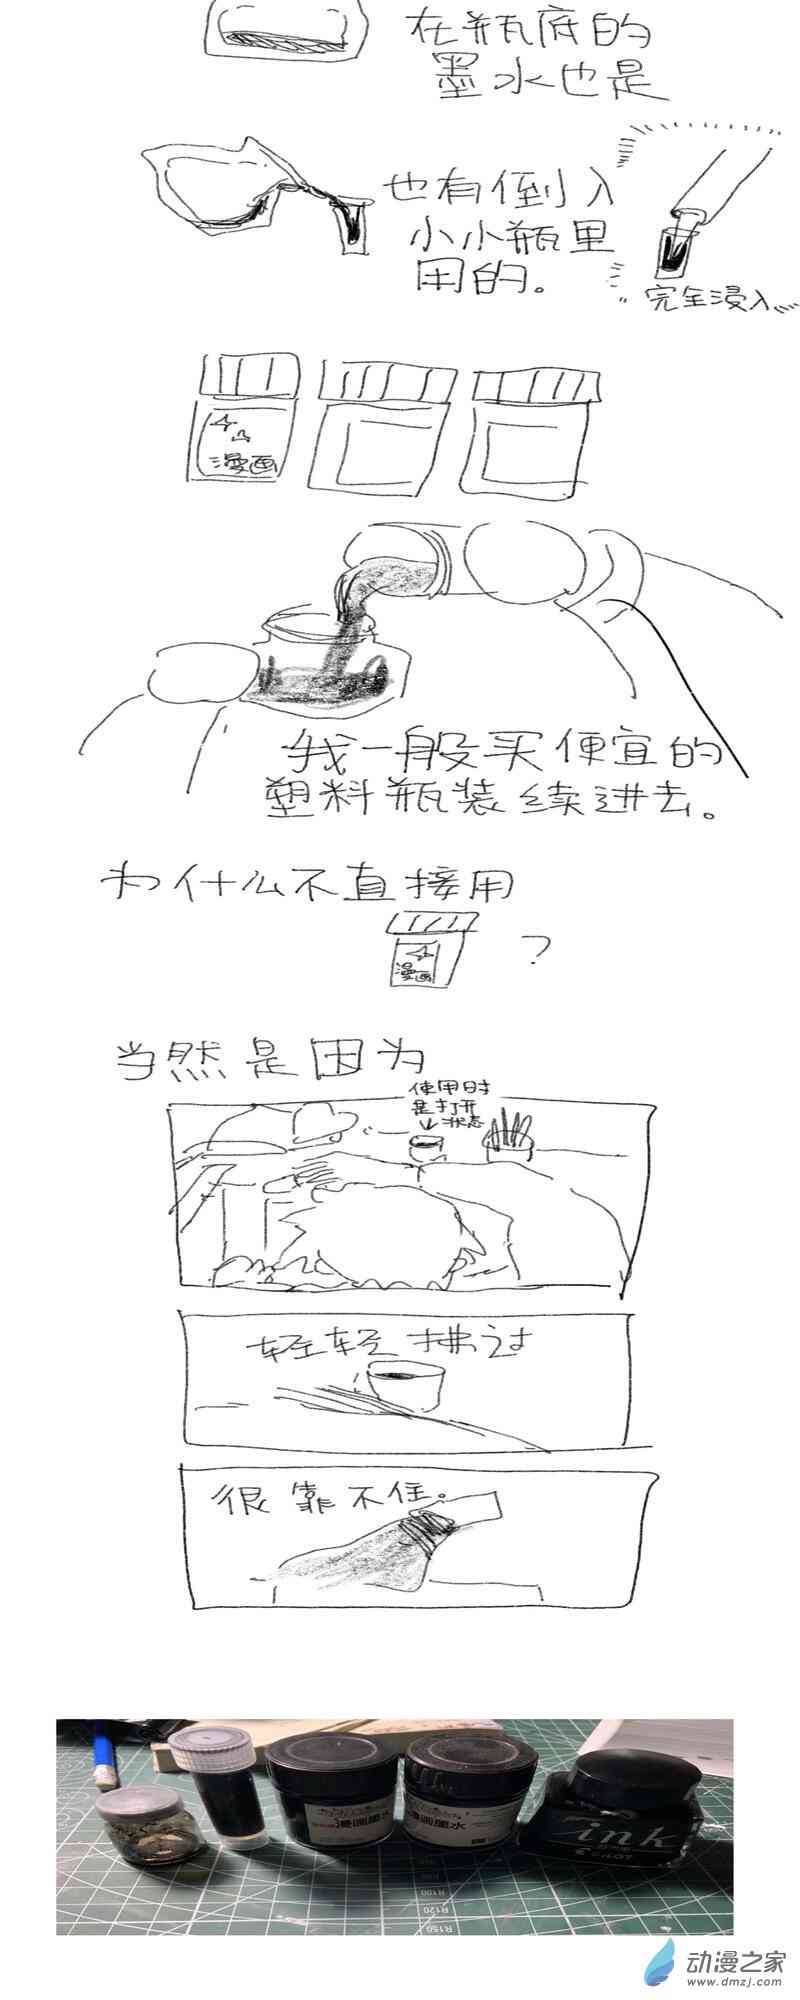 在瓶底的
墨水也是
也有倒入
小小瓶里
用的。
完全浸入
漫画
我一般买便宜的
塑料瓶装续进去。
为什么不直接用
漫画
?
当然是因为
使用时
是打开
状态
轻轻拂过
很靠不住。
漫画墨水
漫画墨水
ink
PILOT
R100
R120
R150
动漫之家
www.dmzj.com